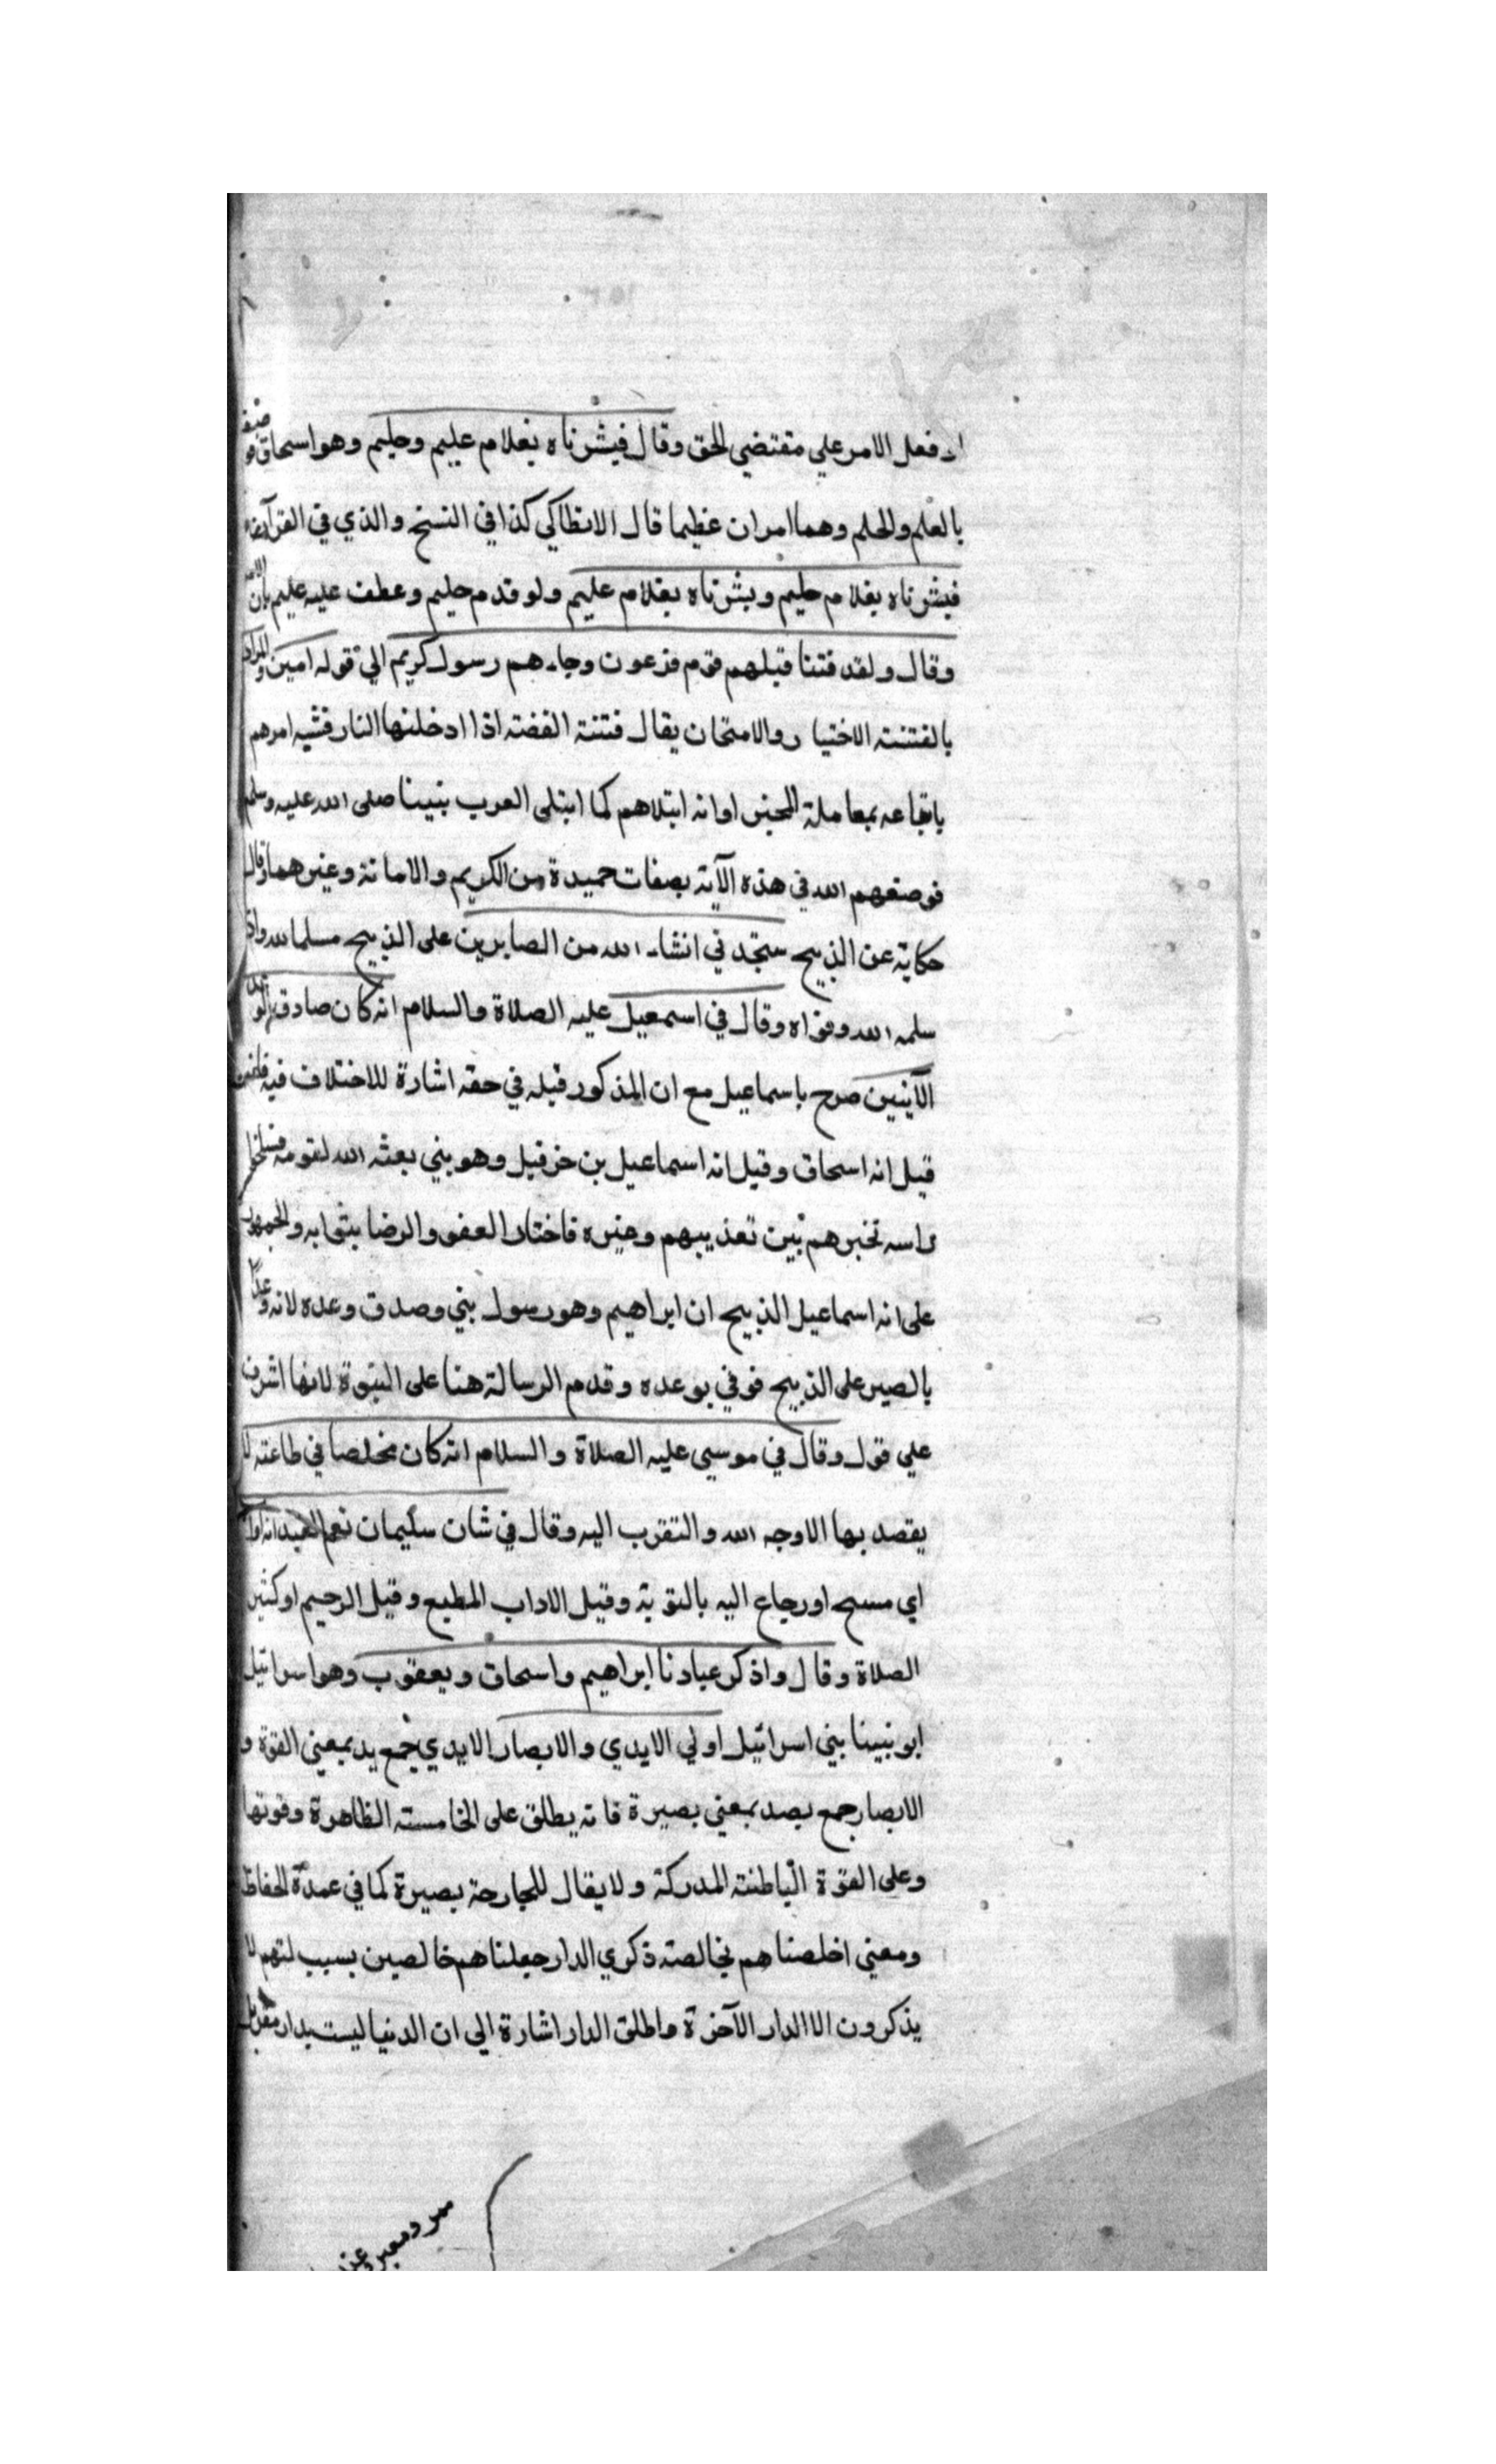 اد فعل الامر علي مقتضي الحق وقال فبشرناه بغلام عليم وحليم وهو اسحاق
بالعلم والحلم وهما امران عظيما قال الانطاكي كذا في النسخ والذي في القرآن
فبشرناه بغلام حليم وبشرناه بغلام عليم ولو قدم حليم وعطف عليه عليم بان
وقال ولقد فتنا قبلهم قوم فرعون وجاءهم رسول كريم الي قوله امين والمراد
بالفتنته الاختيار والامتحان يقال فتنة الفضته اذا ادخلنها النار فشبه امرهم
باتباعه بمعاملة المخبر او انه ابتلاهم كما ابتلى العرب بنبينا صلى الله عليه وسلم
فوصفهم الله في هذه الآية بصفات حميدة من الكريم والامانة وغيرهما وقال
حكاية عن الذبيح ستجدني انشاء الله من الصابرين على الذبيح مسلما لله واذ
سلمه الله وفداه وقال في اسمعيل عليه الصلاة والسلام انه كان صادق الوعد
الآيتين صرح باسماعيل مع ان المذكور قبله في حقه اشارة للاختلاف فيه
قيل انه اسحاق وقيل انه اسماعيل بن حزقيل وهو بني بعثه الله لقومه فسلخوا
راسه تخبرهم بين تعذيبهم وغيره فاختار العفو والرضا بثوابه والجمهور
على انه اسماعيل الذبيح ان ابراهيم وهو رسول بني وصدق وعده لانه وعد
بالصبر على الذبيح فوفي بوعده وقدم الرسالة هنا على النبوة لانها اشرف
علي قول وقال في موسى عليه الصلاة والسلام انه كان مخلصا في طاعته لا
يقصد بها الاوجه الله والتقرب اليه وقال في شان سليمان نعم العبد انه اواب
اي مسبح او رجاع اليه بالتوبة وقيل الاداب المطيع وقيل الرحيم او كثير
الصلاة وقال واذكر عبادنا ابراهيم واسحاق ويعقوب وهو اسرائيل
ابو نبينا بني اسرائيل اولي الايدي والابصار الايدي جمع يد بمعني القوة و
الابصار جمع بصد بمعني بصيرة فانه يطلق على الخامسته الظاهرة وقوتها
وعلى القوة الباطنته المدركة ولا يقال للجارحة بصيرة كما في عمدة الحفاظ
ومعني اخلصناهم بخالصته ذكري الدار جعلناهم خالصين بسبب لتهم لا
يذكرون الا الدار الآخرة واطلق الدار اشارة الي ان الدنيا ليست بدار مقر بل
ممر ومعبر وعن